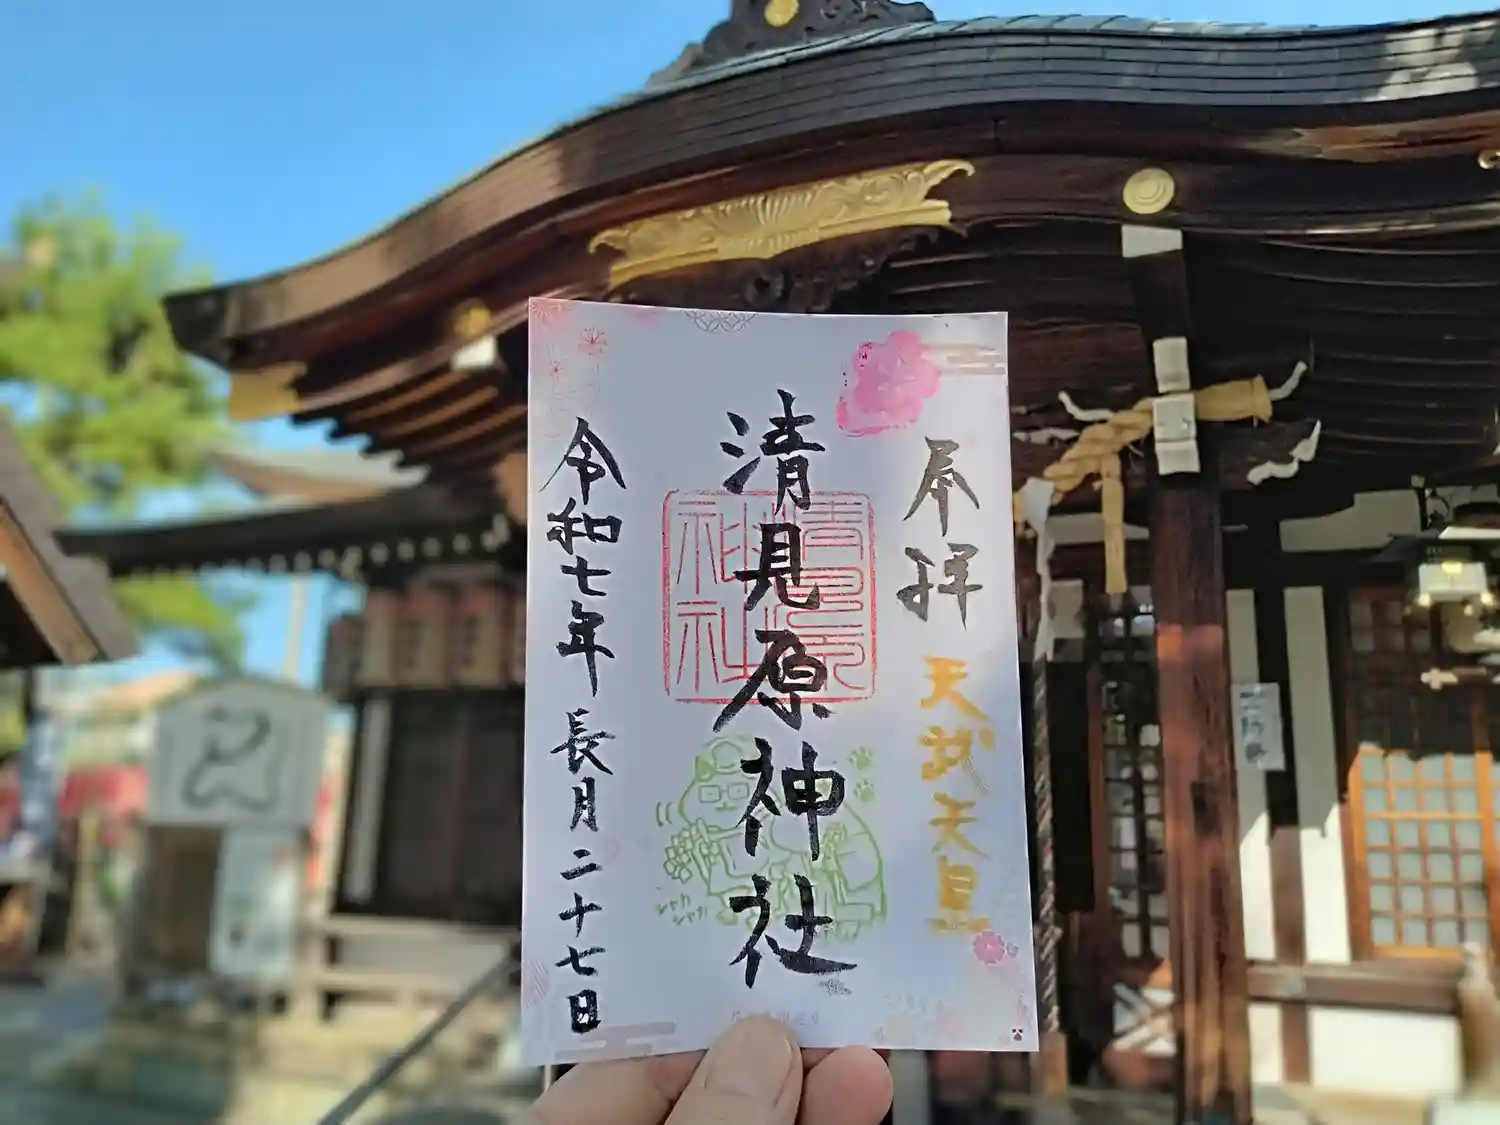 奉拝
天武天皇
清見原神社
清見原
神社
シャカ
シャカ
令和七年 長月 二十七日